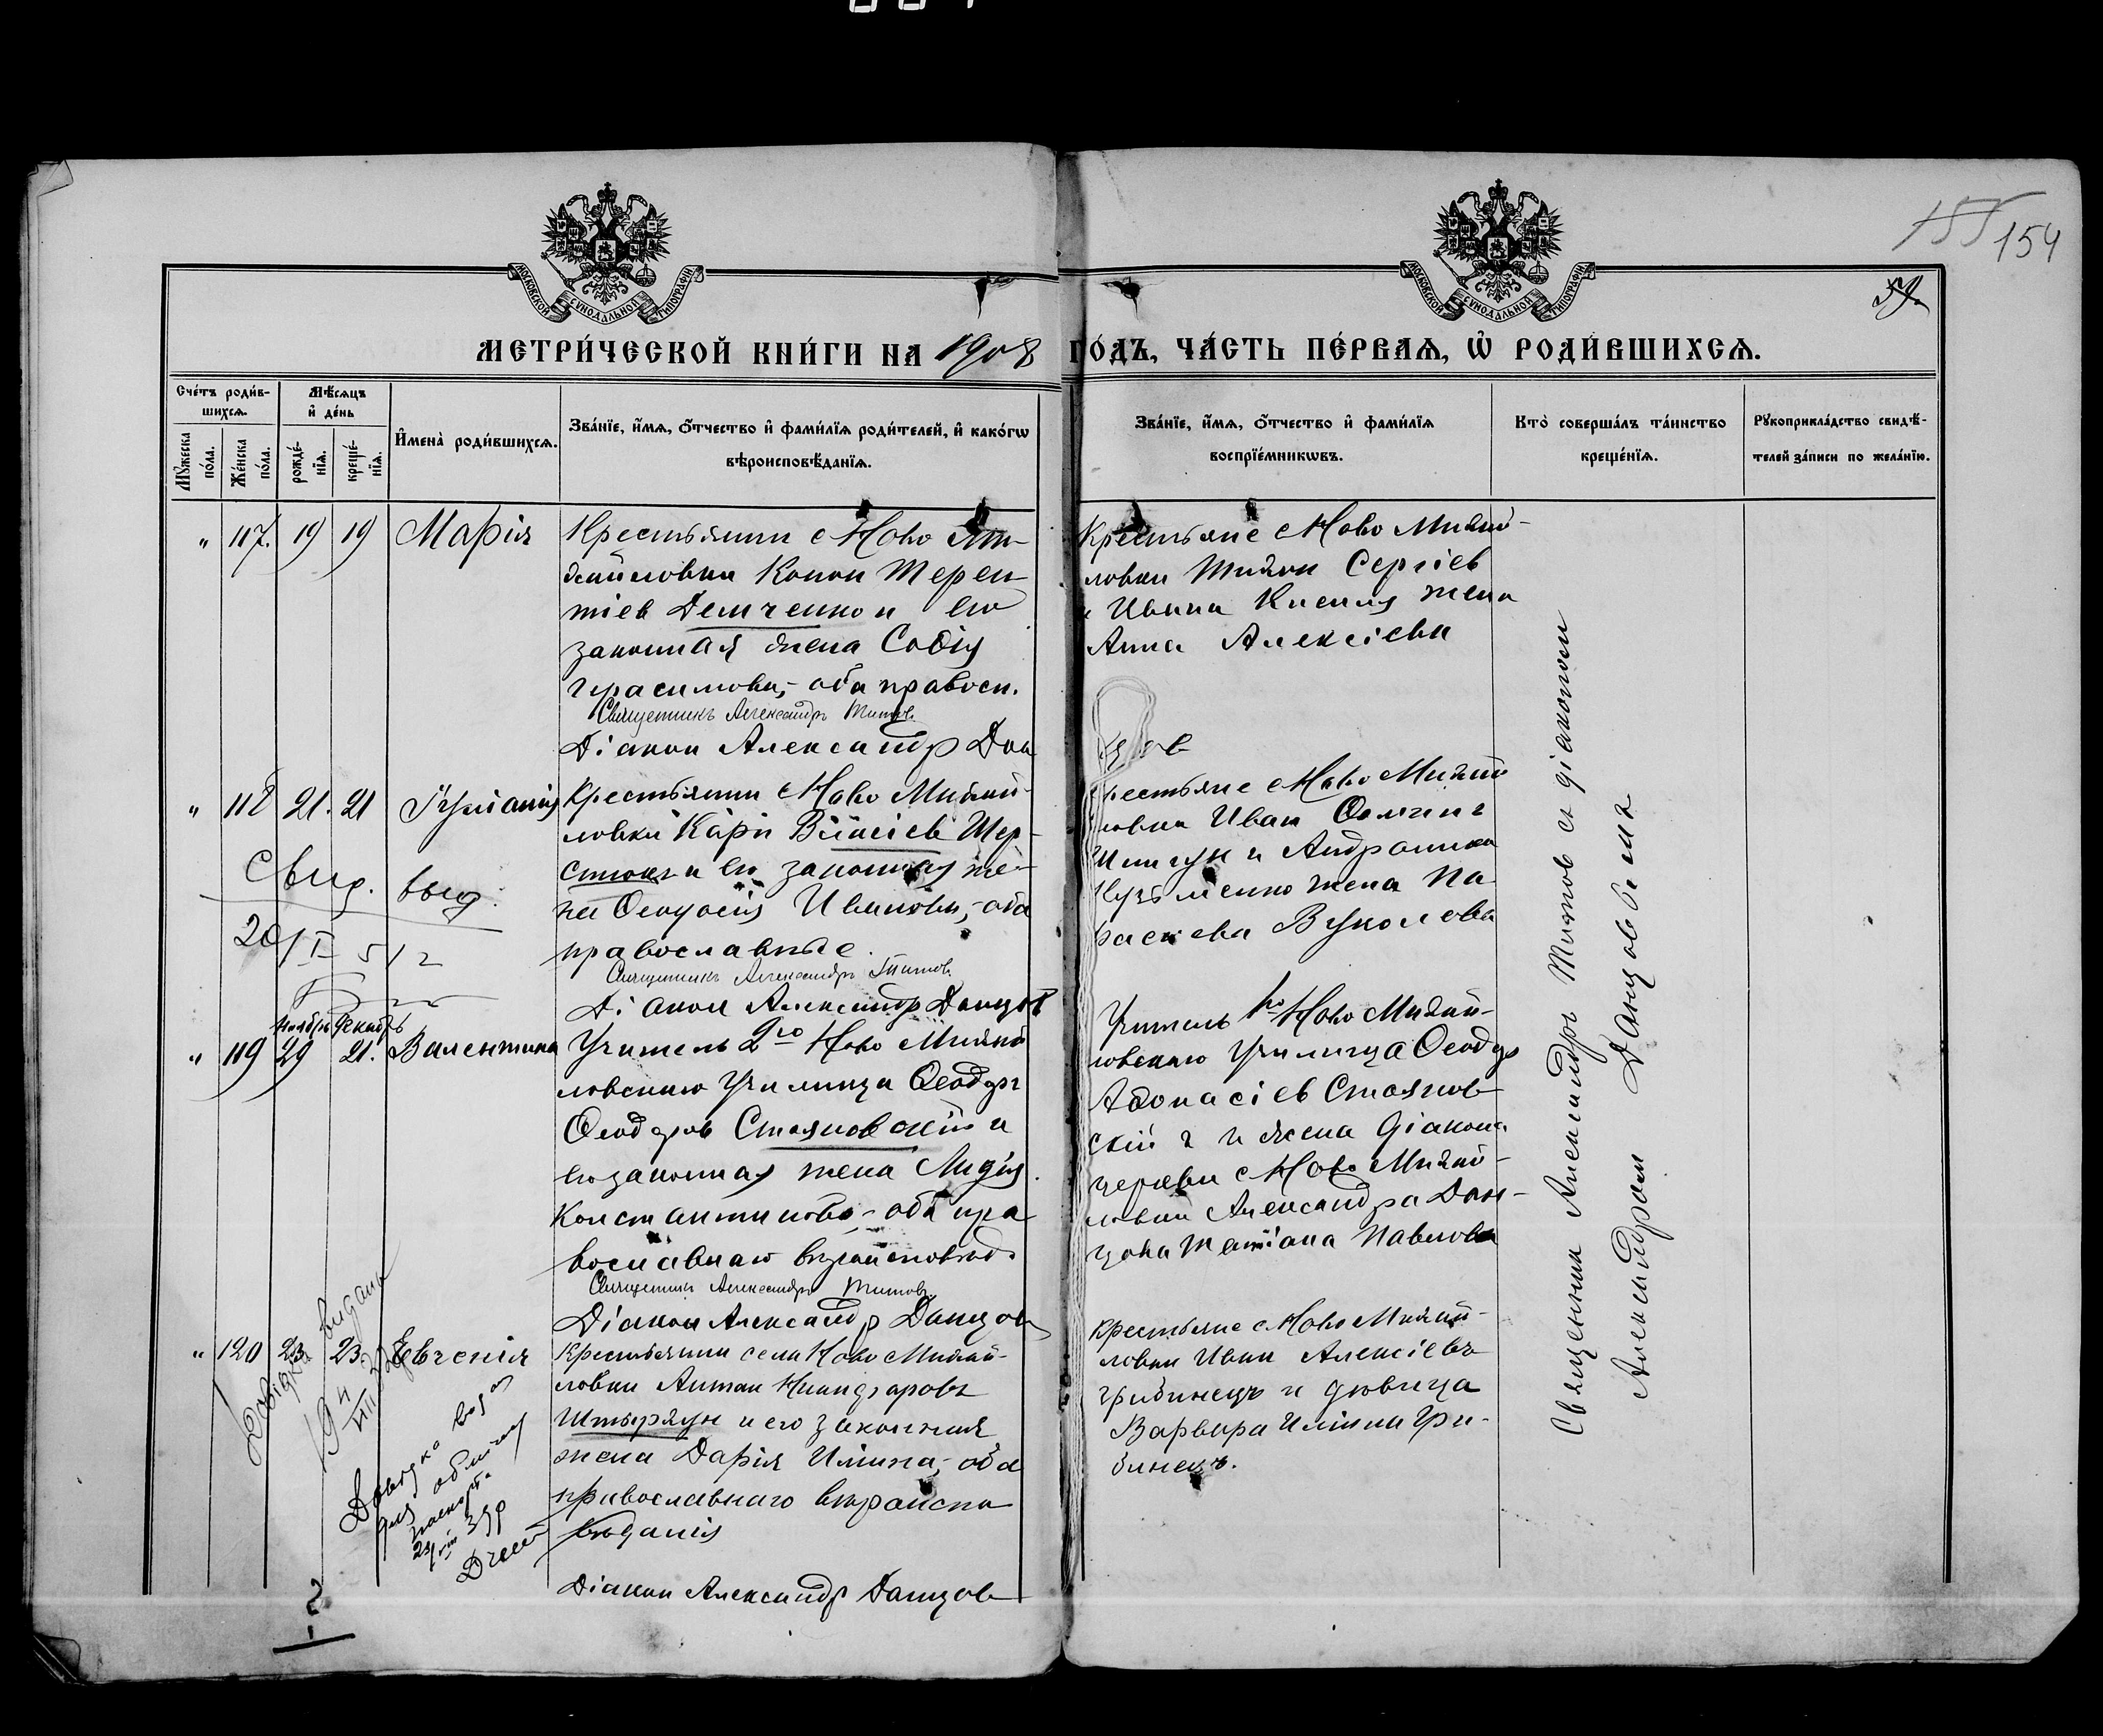 155 154
59.
МОСКОВСКОЙ СѴНОДАЛЬНОЙ ТИПОГРАФІИ
МОСКОВСКОЙ СѴНОДАЛЬНОЙ ТИПОГРАФІИ
МЕТРИ́ЧЕСКОЙ КНИ́ГИ НА 1908 ГО́ДЪ, ЧА́СТЬ ПЕ́РВАѦ, Ѽ РОДИ́ВШИХСѦ.
Сче́тъ роди́в-
шихсѧ.
Мꙋжеска по́ла.
Же́нска по́ла.
Мѣ́сѧцъ
и҆ де́нь
рожде́-
нїѧ.
креще́-
нїѧ.
И҆мена̀ роди́вшихсѧ.
Зва́нїе, и҆́мѧ, ѻ҆́тчество и҆ фами́лїѧ роди́телей, и҆ како́гѡ
вѣроисповѣ́данїѧ.
Зва́нїе, и҆́мѧ, ѻ҆́тчество и҆ фами́лїѧ
воспрїе́мникѡвъ.
Кто̀ соверша́лъ та́инство
креще́нїѧ.
Рꙋкоприкла́дство свидѣ́-
телей за́писи по жела́нїю.
" 117. 19 19 Марія
Крестьянин с Ново Ми-
хайловки Конон Терен-
тіев Демченко и его
законная жена Софія
Герасимова,- оба правосл.
Священникъ Александръ Титов.
Діакон Александр Дан
цов
Крестьяне с Ново Михай-
ловки Тихон Сергіев
и Ивана Киселя жена
Анна Алексіева
" 118 21. 21 Іуліанія
Крестьянин с Ново Михай-
ловки Карп Шер-
стюк и его законная же-
на Феодосія Иванова,- оба
православные.
Священникъ Александръ Титов.
Діакон Александр Данцов
Крестьяне с Ново Михай
ловки Иван Фомин
и Андроника
Кузьменко жена Па-
раскева Вуколова
Свид. выд.
20/I 512
Ноябрь Декабрь
" 119 29 21. Валентина
Учитель 2го Ново Михай
ловскаго Училища Феодор
Феодоров Стояновскій и
его законная жена Лидія
Константинова- оба пра
вославнаго вероисповед.
Священникъ Александръ Титовъ.
Діакон Александр Данцов
Учитель 1го Ново Михай-
ловскаго Училища Феодор
Афонасіев Стоянов-
скій и жена діакона
церкви с Ново Михай-
ловки Александра Дан-
цова Татіана Павлова
" 120 23 23 Евгенія
Крестьянин села Ново Михай-
ловки Антон Никандровъ
Штырхун и его законная
жена Дарія Ильина,- оба
православнаго вероиспо
веданія
Діакон Александр Данцов
Крестьяне с Ново Михай-
ловки Иван Алексіевъ
Грибинецъ и девица
Варвара Ильина Гри-
бинецъ.
Священник Александр Титов с діаконом
Александром Данцовым
Довідка видана
Довідка видан
для обміну
паспорта
24/VIII 39р